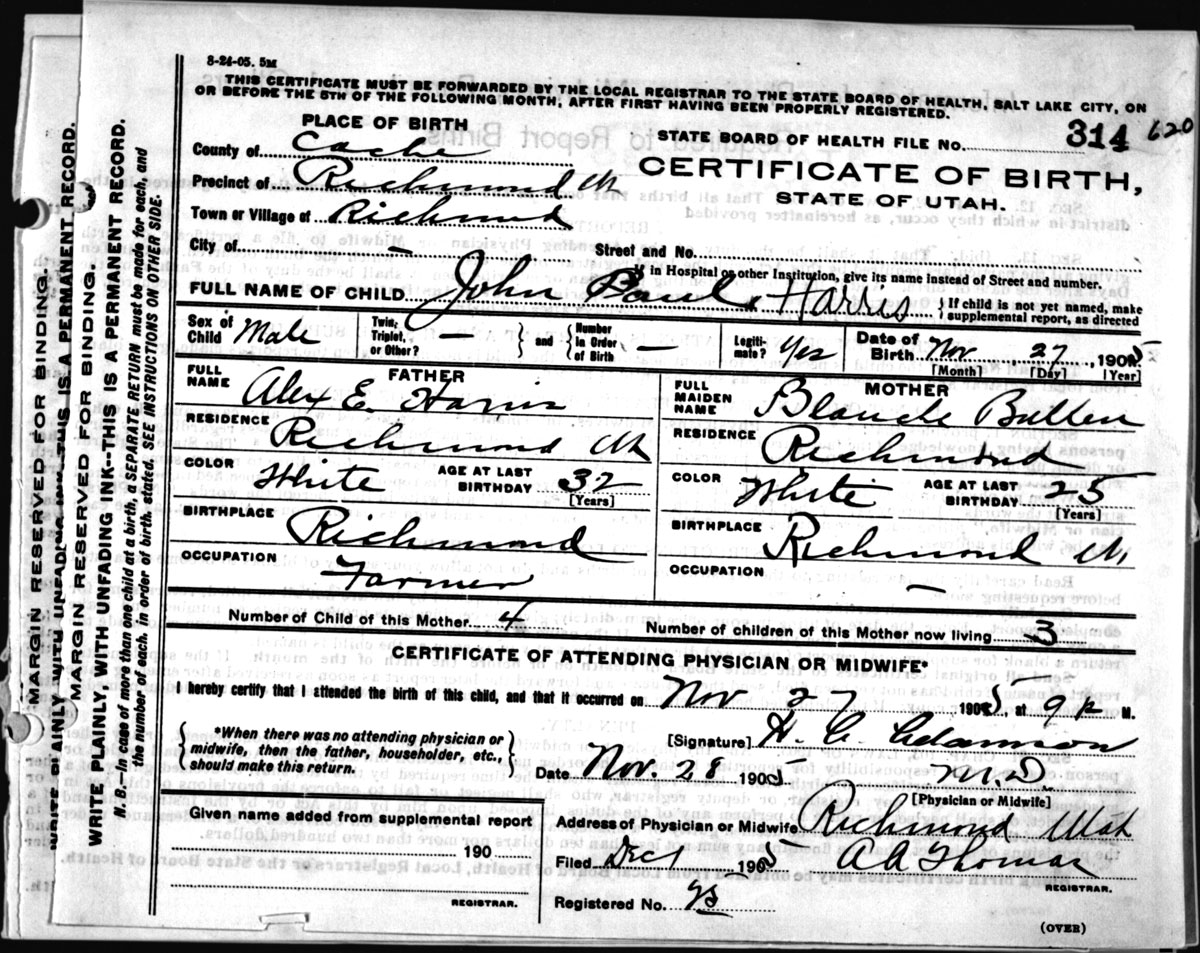 8-24-05. 5M
THIS CERTIFICATE MUST BE FORWARDED BY THE LOCAL REGISTRAR TO THE STATE BOARD OF HEALTH, SALT LAKE CITY, ON
OR BEFORE THE 5TH OF THE FOLLOWING MONTH, AFTER FIRST HAVING BEEN PROPERLY REGISTERED.
PLACE OF BIRTH
STATE BOARD OF HEALTH FILE No. 314 620
County of Cache
CERTIFICATE OF BIRTH,
Precinct of Richmond
STATE OF UTAH.
Town or Village of Richmond
City of Street and No.
If in Hospital or other Institution, give its name instead of Street and number.
FULL NAME OF CHILD John Paul Harris { If child is not yet named, make supplemental report, as directed
Sex of Child Male Twin, Triplet, or Other? — and Number in Order of Birth Legiti-mate? Yes Date of Birth Nov 27, 1905
[Month] [Day] [Year]
FATHER
FULL NAME Alex E. Harris
RESIDENCE Richmond
COLOR White AGE AT LAST BIRTHDAY 32
[Years]
BIRTHPLACE Richmond
OCCUPATION Farmer
MOTHER
FULL MAIDEN NAME Blanche Bullen
RESIDENCE Richmond
COLOR White AGE AT LAST BIRTHDAY 25
[Years]
BIRTHPLACE Richmond
OCCUPATION —
Number of Child of this Mother 4 Number of children of this Mother now living 3
CERTIFICATE OF ATTENDING PHYSICIAN OR MIDWIFE*
I hereby certify that I attended the birth of this child, and that it occurred on Nov 27 1905, at 9 P M.
*When there was no attending physician or
midwife, then the father, householder, etc.,
should make this return.
[Signature] H. C. Adamson
Date Nov. 28 1905 M.D.
[Physician or Midwife]
Given name added from supplemental report
190
REGISTRAR.
Address of Physician or Midwife Richmond Utah
Filed Dec 1 1905 A A Thomas
REGISTRAR.
Registered No.
(OVER)
MARGIN RESERVED FOR BINDING.
THIS IS A PERMANENT RECORD.
MARGIN RESERVED FOR BINDING.
WRITE PLAINLY, WITH UNFADING INK--THIS IS A PERMANENT RECORD.
N. B.--In case of more than one child at a birth, a SEPARATE RETURN must be made for each, and
the number of each, in order of birth, stated. SEE INSTRUCTIONS ON OTHER SIDE.